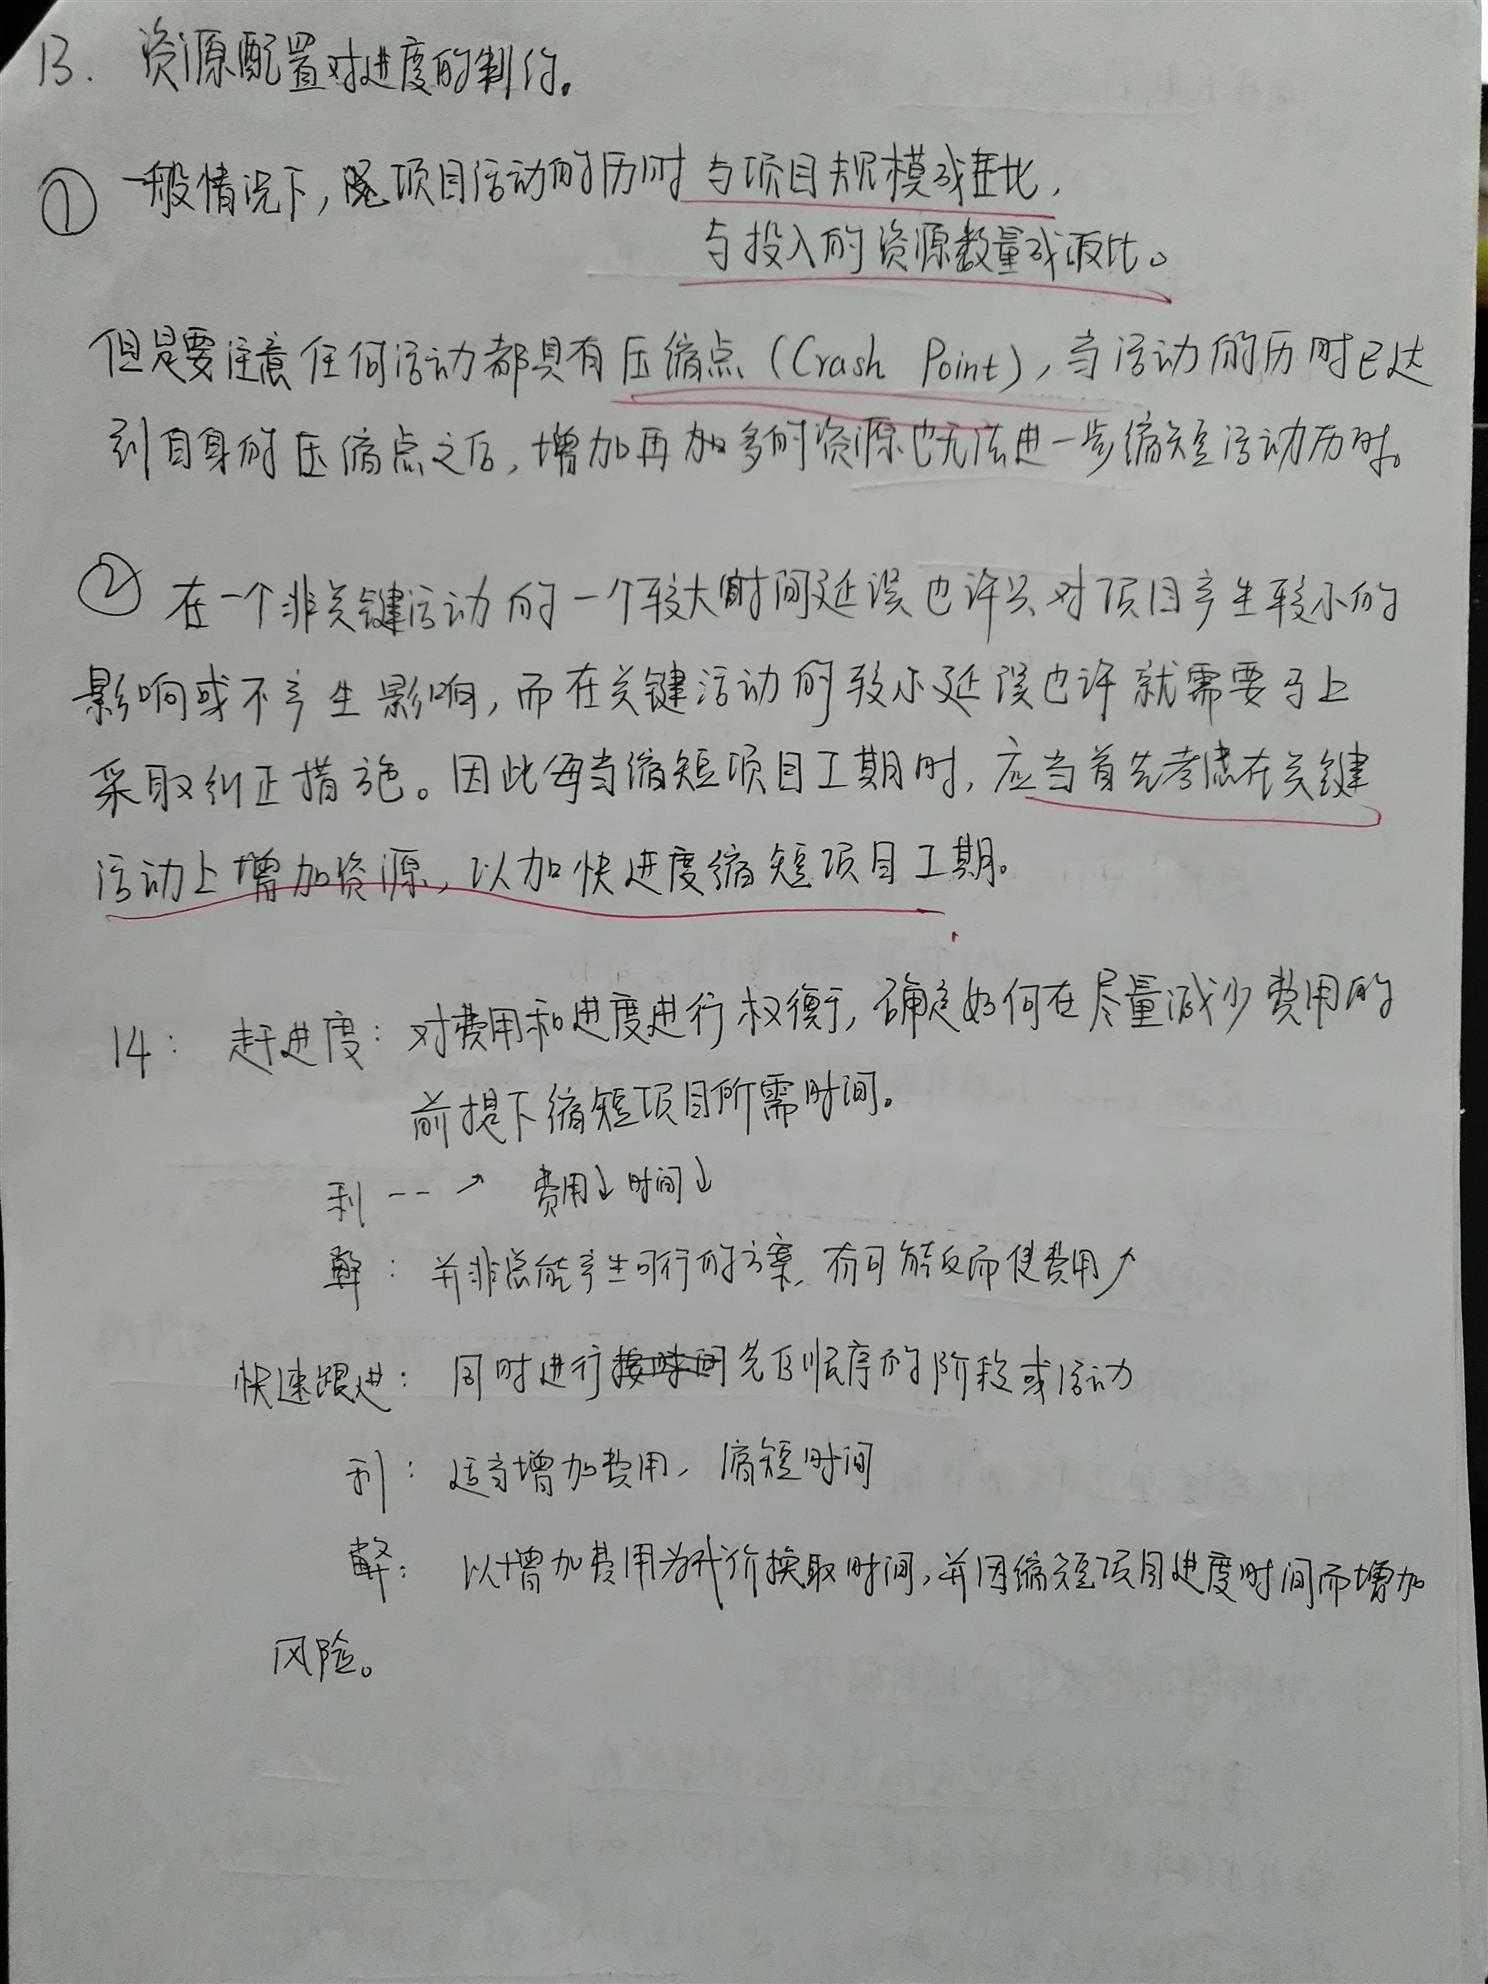 13. 资源配置对进度的制约。
① 一般情况下，项目活动的历时与项目规模成正比，
与投入的资源数量成反比。
但是要注意任何活动都具有压缩点（Crash Point），当活动的历时已达
到自身的压缩点之后，增加再加多的资源也无法进一步缩短活动历时。
② 在一个非关键活动的一个较大时间延误也许只对项目产生较小的
影响或不产生影响，而在关键活动的较小延误也许就需要马上
采取纠正措施。因此每当缩短项目工期时，应当首先考虑在关键
活动上增加资源，以加快进度缩短项目工期。
14：赶进度：对费用和进度进行权衡，确定如何在尽量减少费用的
前提下缩短项目所需时间。
利 --→ 费用↓时间↓
弊：并非总能产生可行的方案，有可能反而使费用↗
快速跟进：同时进行先后顺序的阶段或活动
利：适当增加费用，缩短时间
弊：以增加费用为代价换取时间，并因缩短项目进度时间而增加
风险。